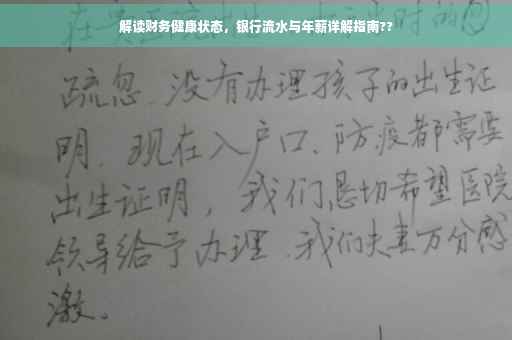 解读财务健康状态，银行流水与年薪详解指南??
疏忽、没有办理孩子的出生证
明、现在入户口、防疫都需要
出生证明，我们恳切希望医院
领导给予办理、我们夫妻万分感
激。